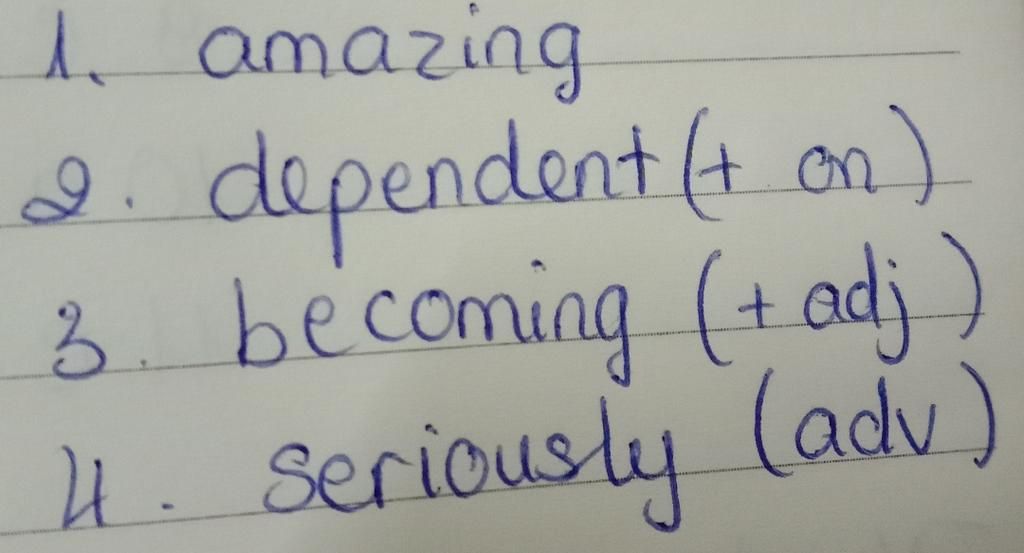 1. amazing
2. dependent (+ on)
3. becoming (+ adj)
4. seriously (adv)